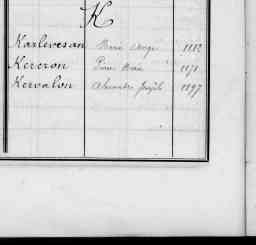 K
Karlevesan Marie Ange
Kereron Pierre Marie 1871
Kervalon Alexandre Joseph 1897